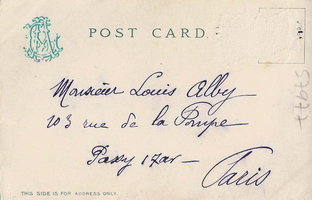 POST CARD.
Monsieur Louis Alby
103 rue de la Pompe
Passy
Paris
THIS SIDE IS FOR ADDRESS ONLY.